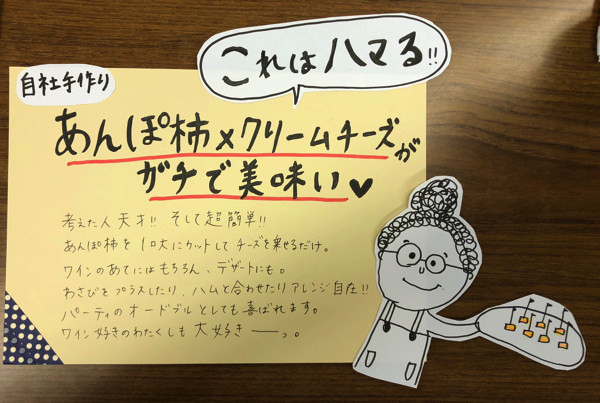 これはハマる!!
自社手作り
あんぽ柿×クリームチーズが
ガチで美味い♥
考えた人天才!! そして超簡単!!
あんぽ柿を1口大にカットしてチーズを乗せるだけ。
ワインのあてにはもちろん、デザートにも。
わさびをプラスしたり、ハムと合わせたりアレンジ自在!!
パーティのオードブルとしても喜ばれます。
ワイン好きのわたくしも大好きーっ。